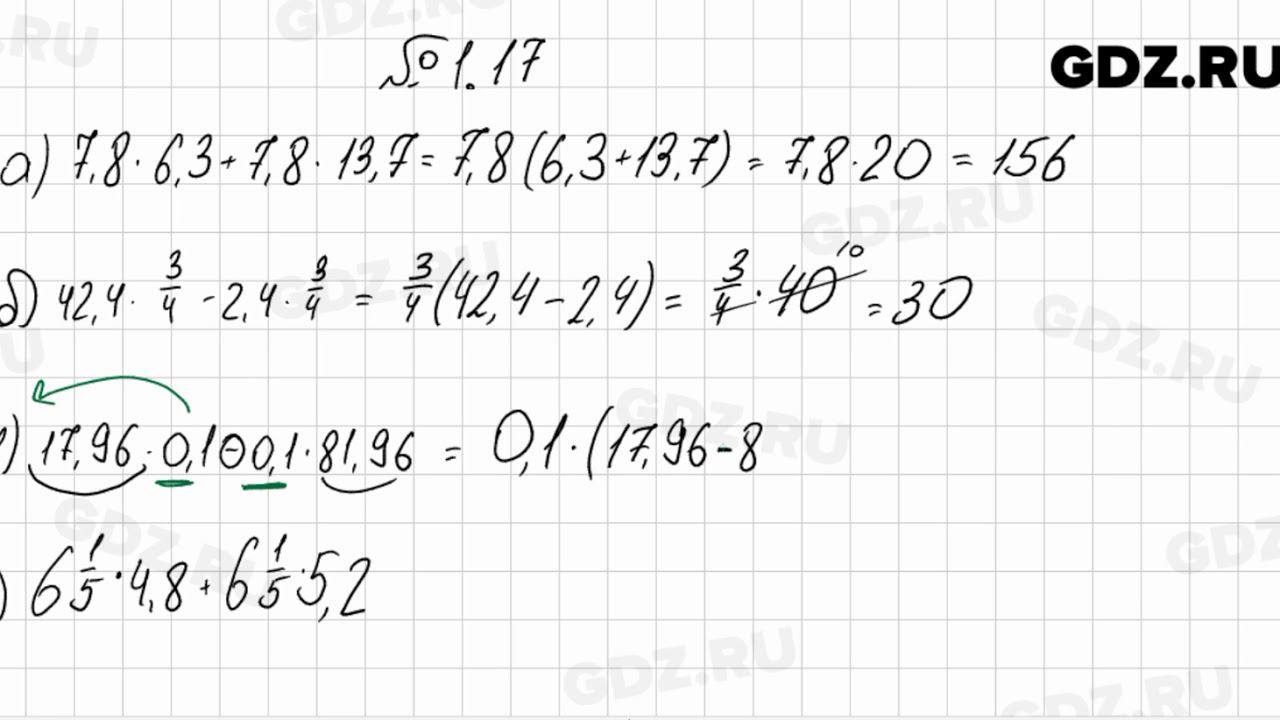 № 1.17
GDZ.RU
а) 7,8 · 6,3 + 7,8 · 13,7 = 7,8 (6,3 + 13,7) = 7,8 · 20 = 156
б) 42,4 · 3/4 - 2,4 · 3/4 = 3/4 (42,4 - 2,4) = 3/4 · 40 10 = 30
) 17,96 · 0,1 - 0,1 · 81,96 = 0,1 · (17,96 - 8
) 6 1/5 · 4,8 + 6 1/5 · 5,2